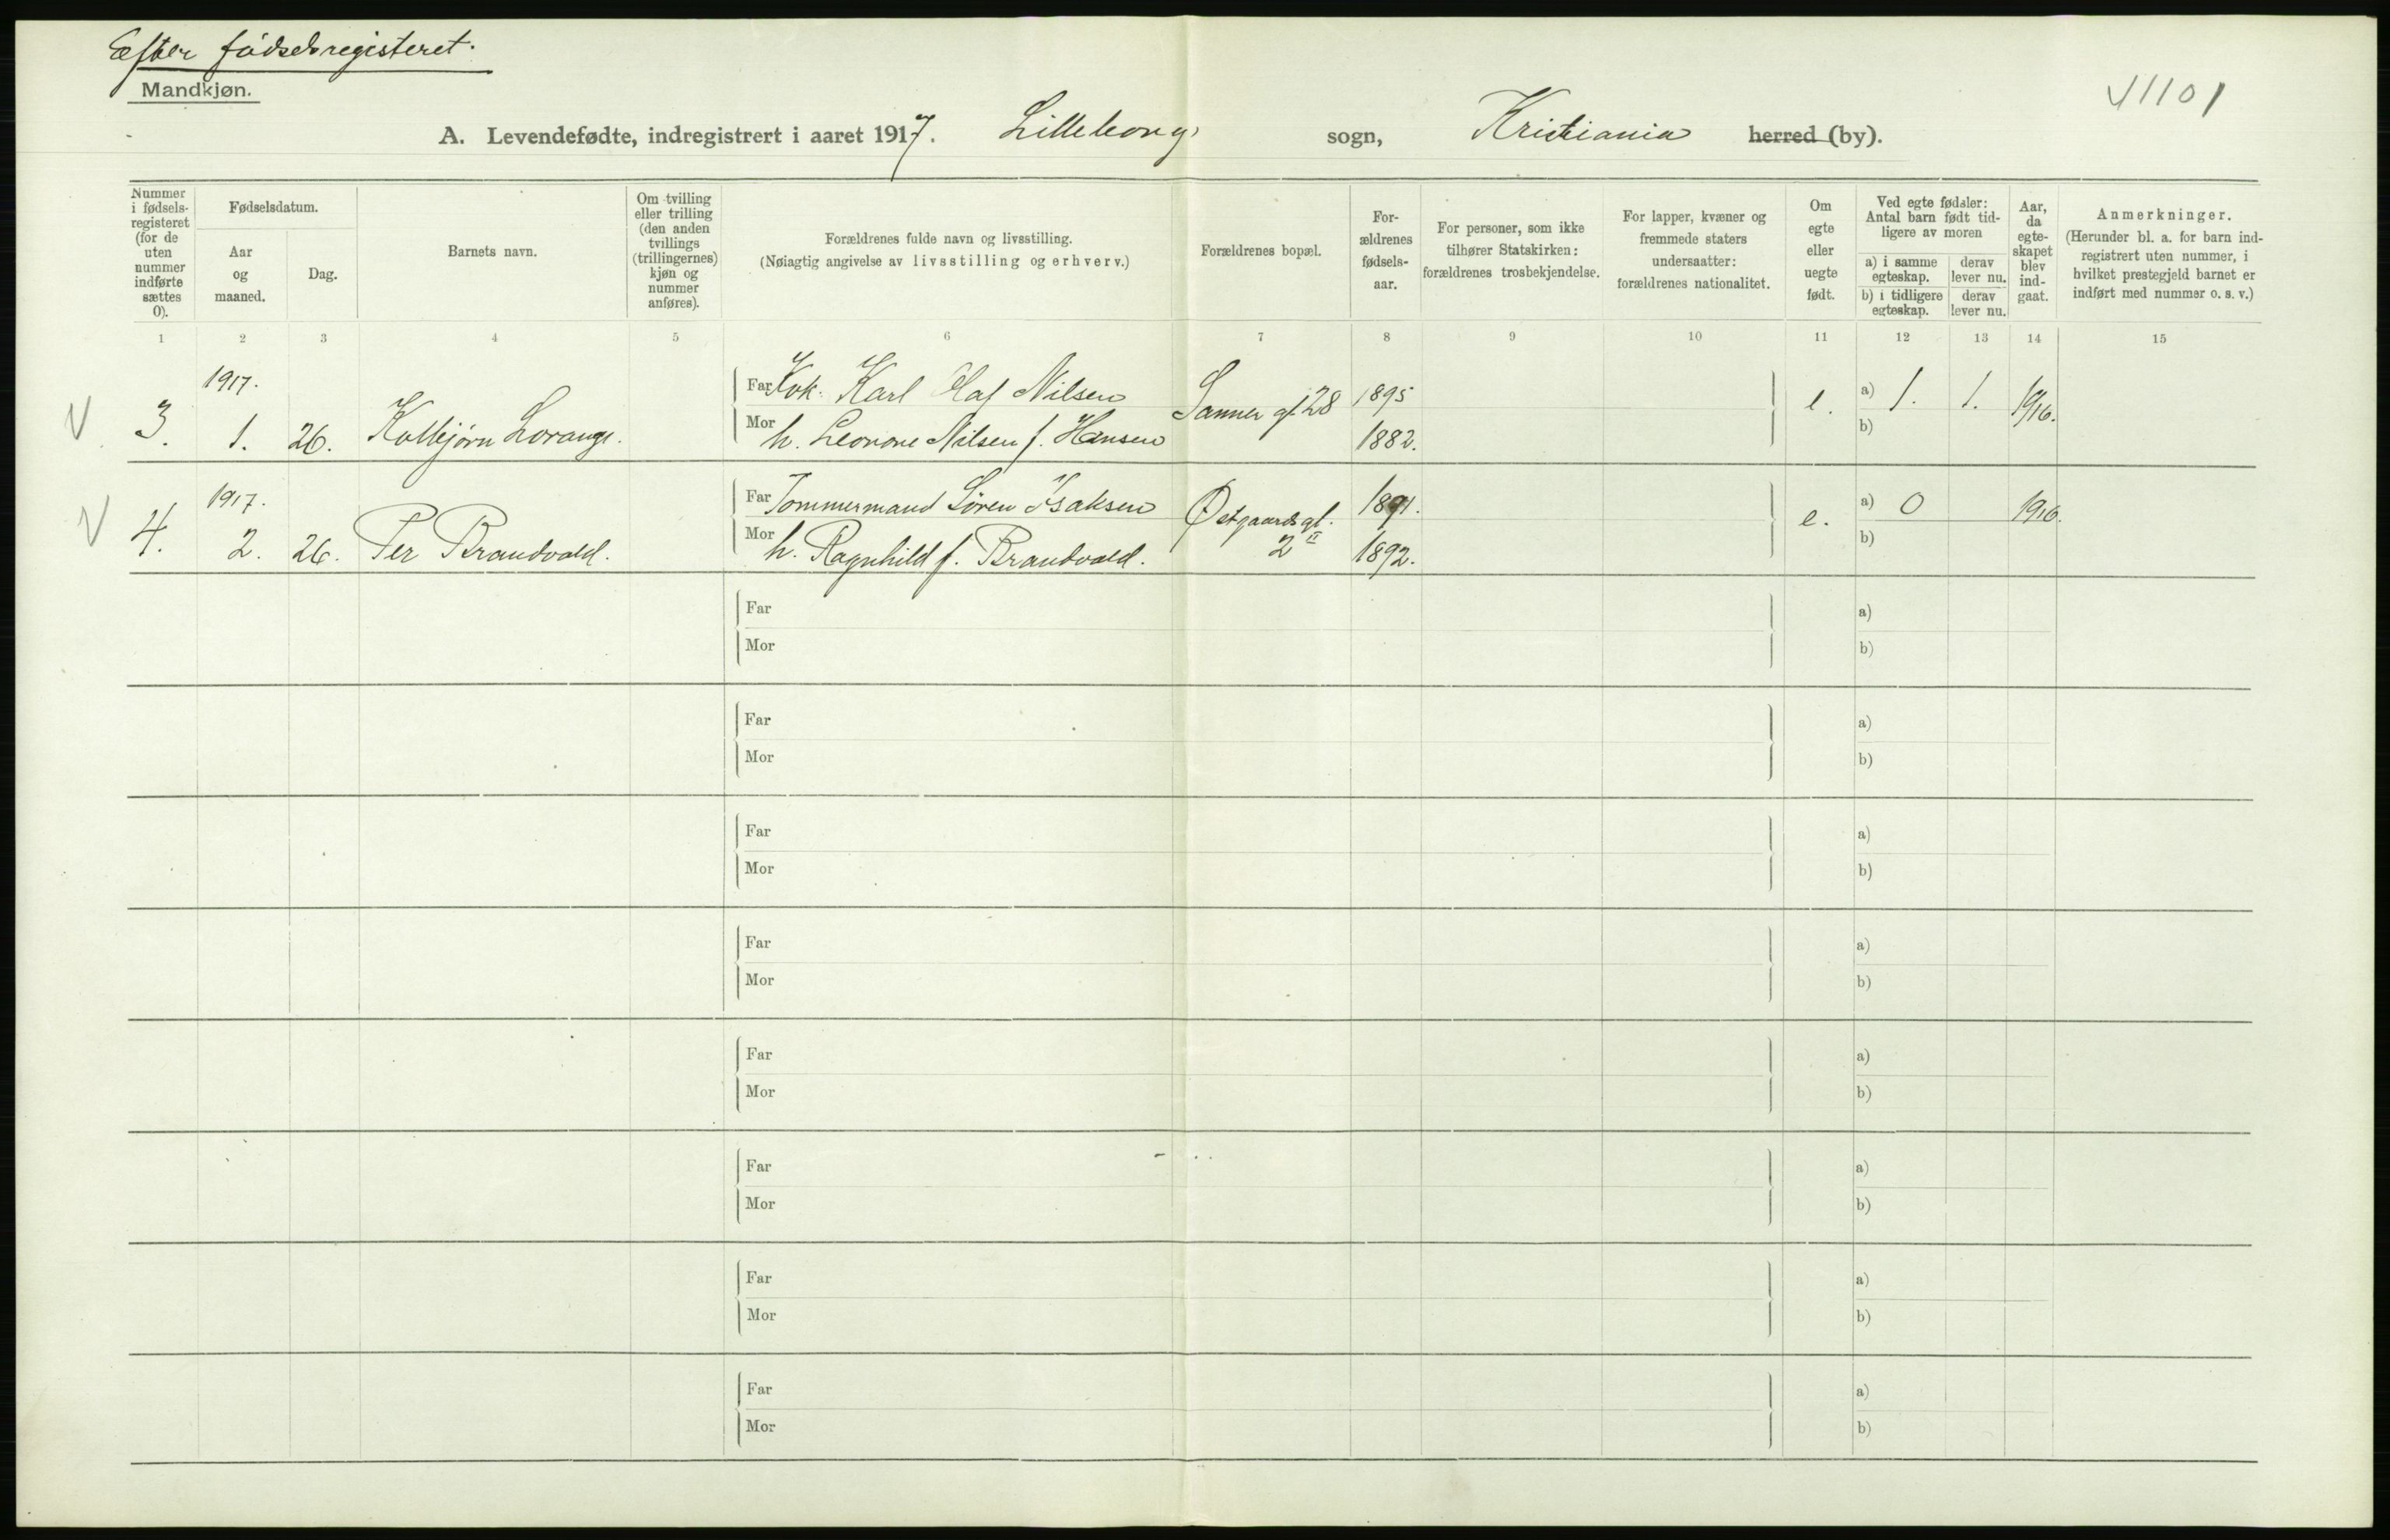 Efter fødselsregisteret.
Mandkjøn.
11101
A. Levendefødte, indregistrert i aaret 1917. Lilleborg sogn, Kristiania herred (by).
Nummer i fødsels-registeret (for de uten nummer indførte sættes 0).
Fødselsdatum.
Aar og maaned.
Dag.
Barnets navn.
Om tvilling eller trilling (den anden tvillings (trillingernes) kjøn og nummer anføres).
Forældrenes fulde navn og livsstilling.
(Nøiagtig angivelse av livsstilling og erhverv.)
Forældrenes bopæl.
For-ældrenes fødsels-aar.
For personer, som ikke tilhører Statskirken: forældrenes trosbekjendelse.
For lapper, kvæner og fremmede staters undersaatter: forældrenes nationalitet.
Om egte eller uegte født.
Ved egte fødsler: Antal barn født tid-ligere av moren
a) i samme egteskap.
derav lever nu.
b) i tidligere egteskap.
derav lever nu.
Aar, da egte-skapet blev ind-gaat.
Anmerkninger.
(Herunder bl. a. for barn ind-registrert uten nummer, i hvilket prestegjeld barnet er indført med nummer o. s. v.)
1 2 3 4 5 6 7 8 9 10 11 12 13 14 15
1917.
Far Kok. Karl Olaf Nilsen Sanner gt 28 1895 e. a) 1. 1. 1916.
3. 1. 26. Kolbjørn Lorang.
Mor h. Leonore Nilsen f. Hansen 1882. b)
1917.
Far Tømmermand Søren Isaksen Østgaards gt. 2 II 1891. e. a) 0 1916.
4. 2. 26. Per Brandvold.
Mor h. Ragnhild f. Brandvold. 1892. b)
Far a)
Mor b)
Far a)
Mor b)
Far a)
Mor b)
Far a)
Mor b)
Far a)
Mor b)
Far a)
Mor b)
Far a)
Mor b)
Far a)
Mor b)